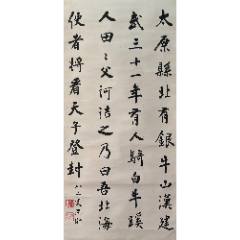 太原縣北有銀牛山漢建
武三十一年有人騎白牛蹊
人田田父訶詰之乃曰吾北海
使者將看天子登封